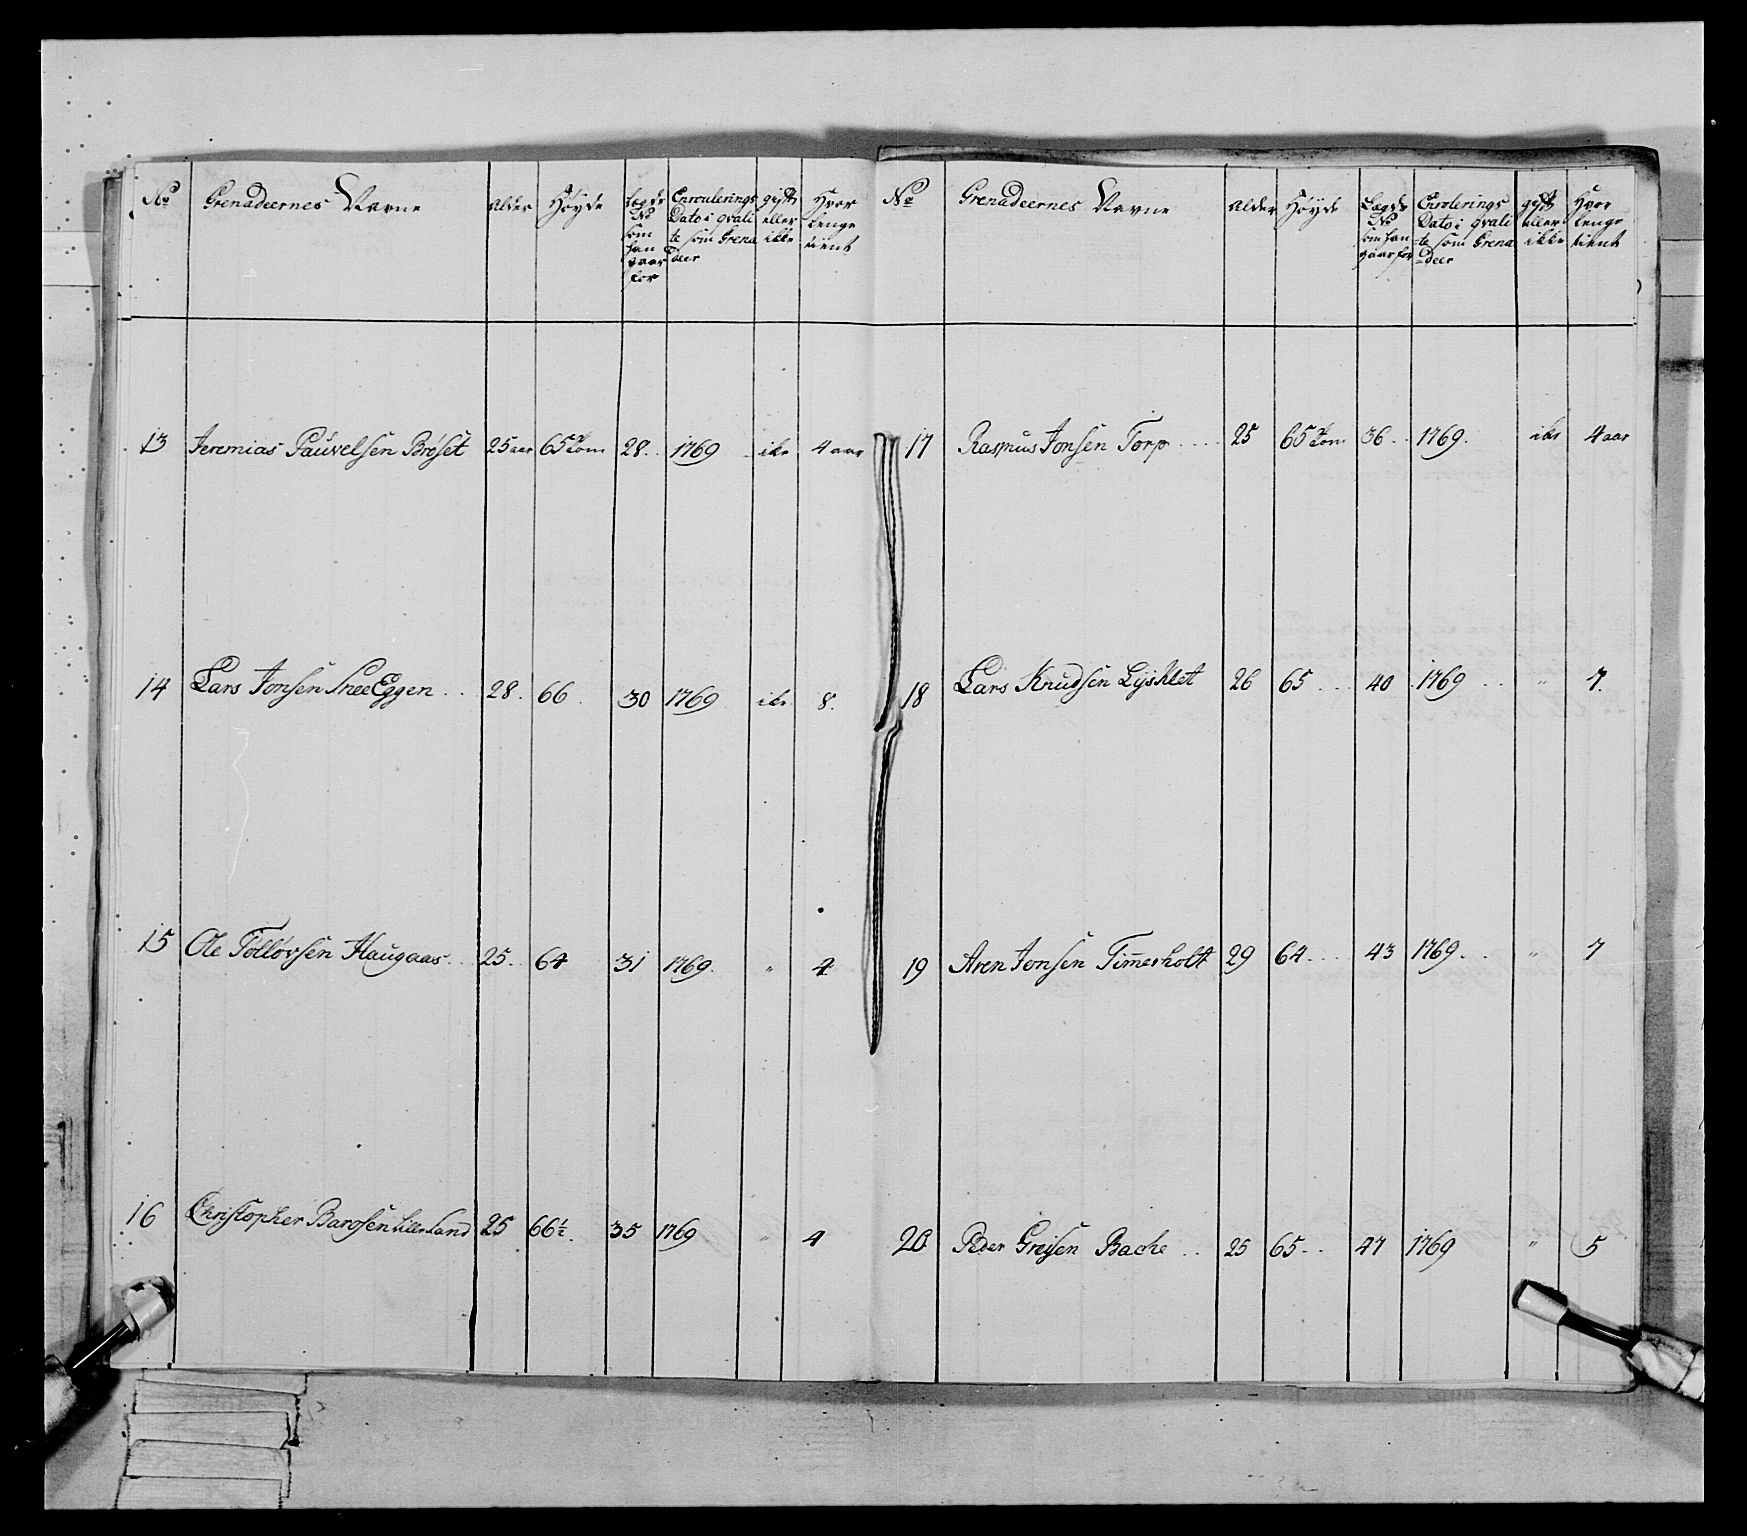 No Grenadeernes Navne Alder Høyde Lægds No som han staar for Enroulerings Dato i qvalite som Grenadeer gift eller ikke Hvor lenge tient
13 Jeremias Pauvelsen Brøset 25 aar 65 Tom 28. 1769 ike 4 aar
14 Lars Jonsen SneeEggen .. 28. 66. 30 1769 ike 8.
15 Ole Tølløvsen Haugaas.. 25. 64 31 1769. " 4
16 Christopher Barosen Lillesand 25 66½. 35 1769 " 4
No Grenadeernes Navne Alder Høyde Lægds No som han staar for Enrolerings Dato i qvali-te som Grena=deer gift eller ikke Hvor lenge tient
17 Rasmus Jonsen Torp .... 25 65 Tom 36.. 1769. ike 4 aar
18 Lars Knudsen Lysklet 26 65 ... 40 1769 .. " 7.
19 Aren Jonsen Timerholt 29 64 ... 43 1769.. " 7
20 Peder Greisen Bache .. 25 65.. 47 1769 " 5